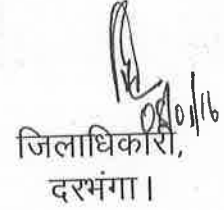 08/01/16
जिलाधिकारी,
दरभंगा।